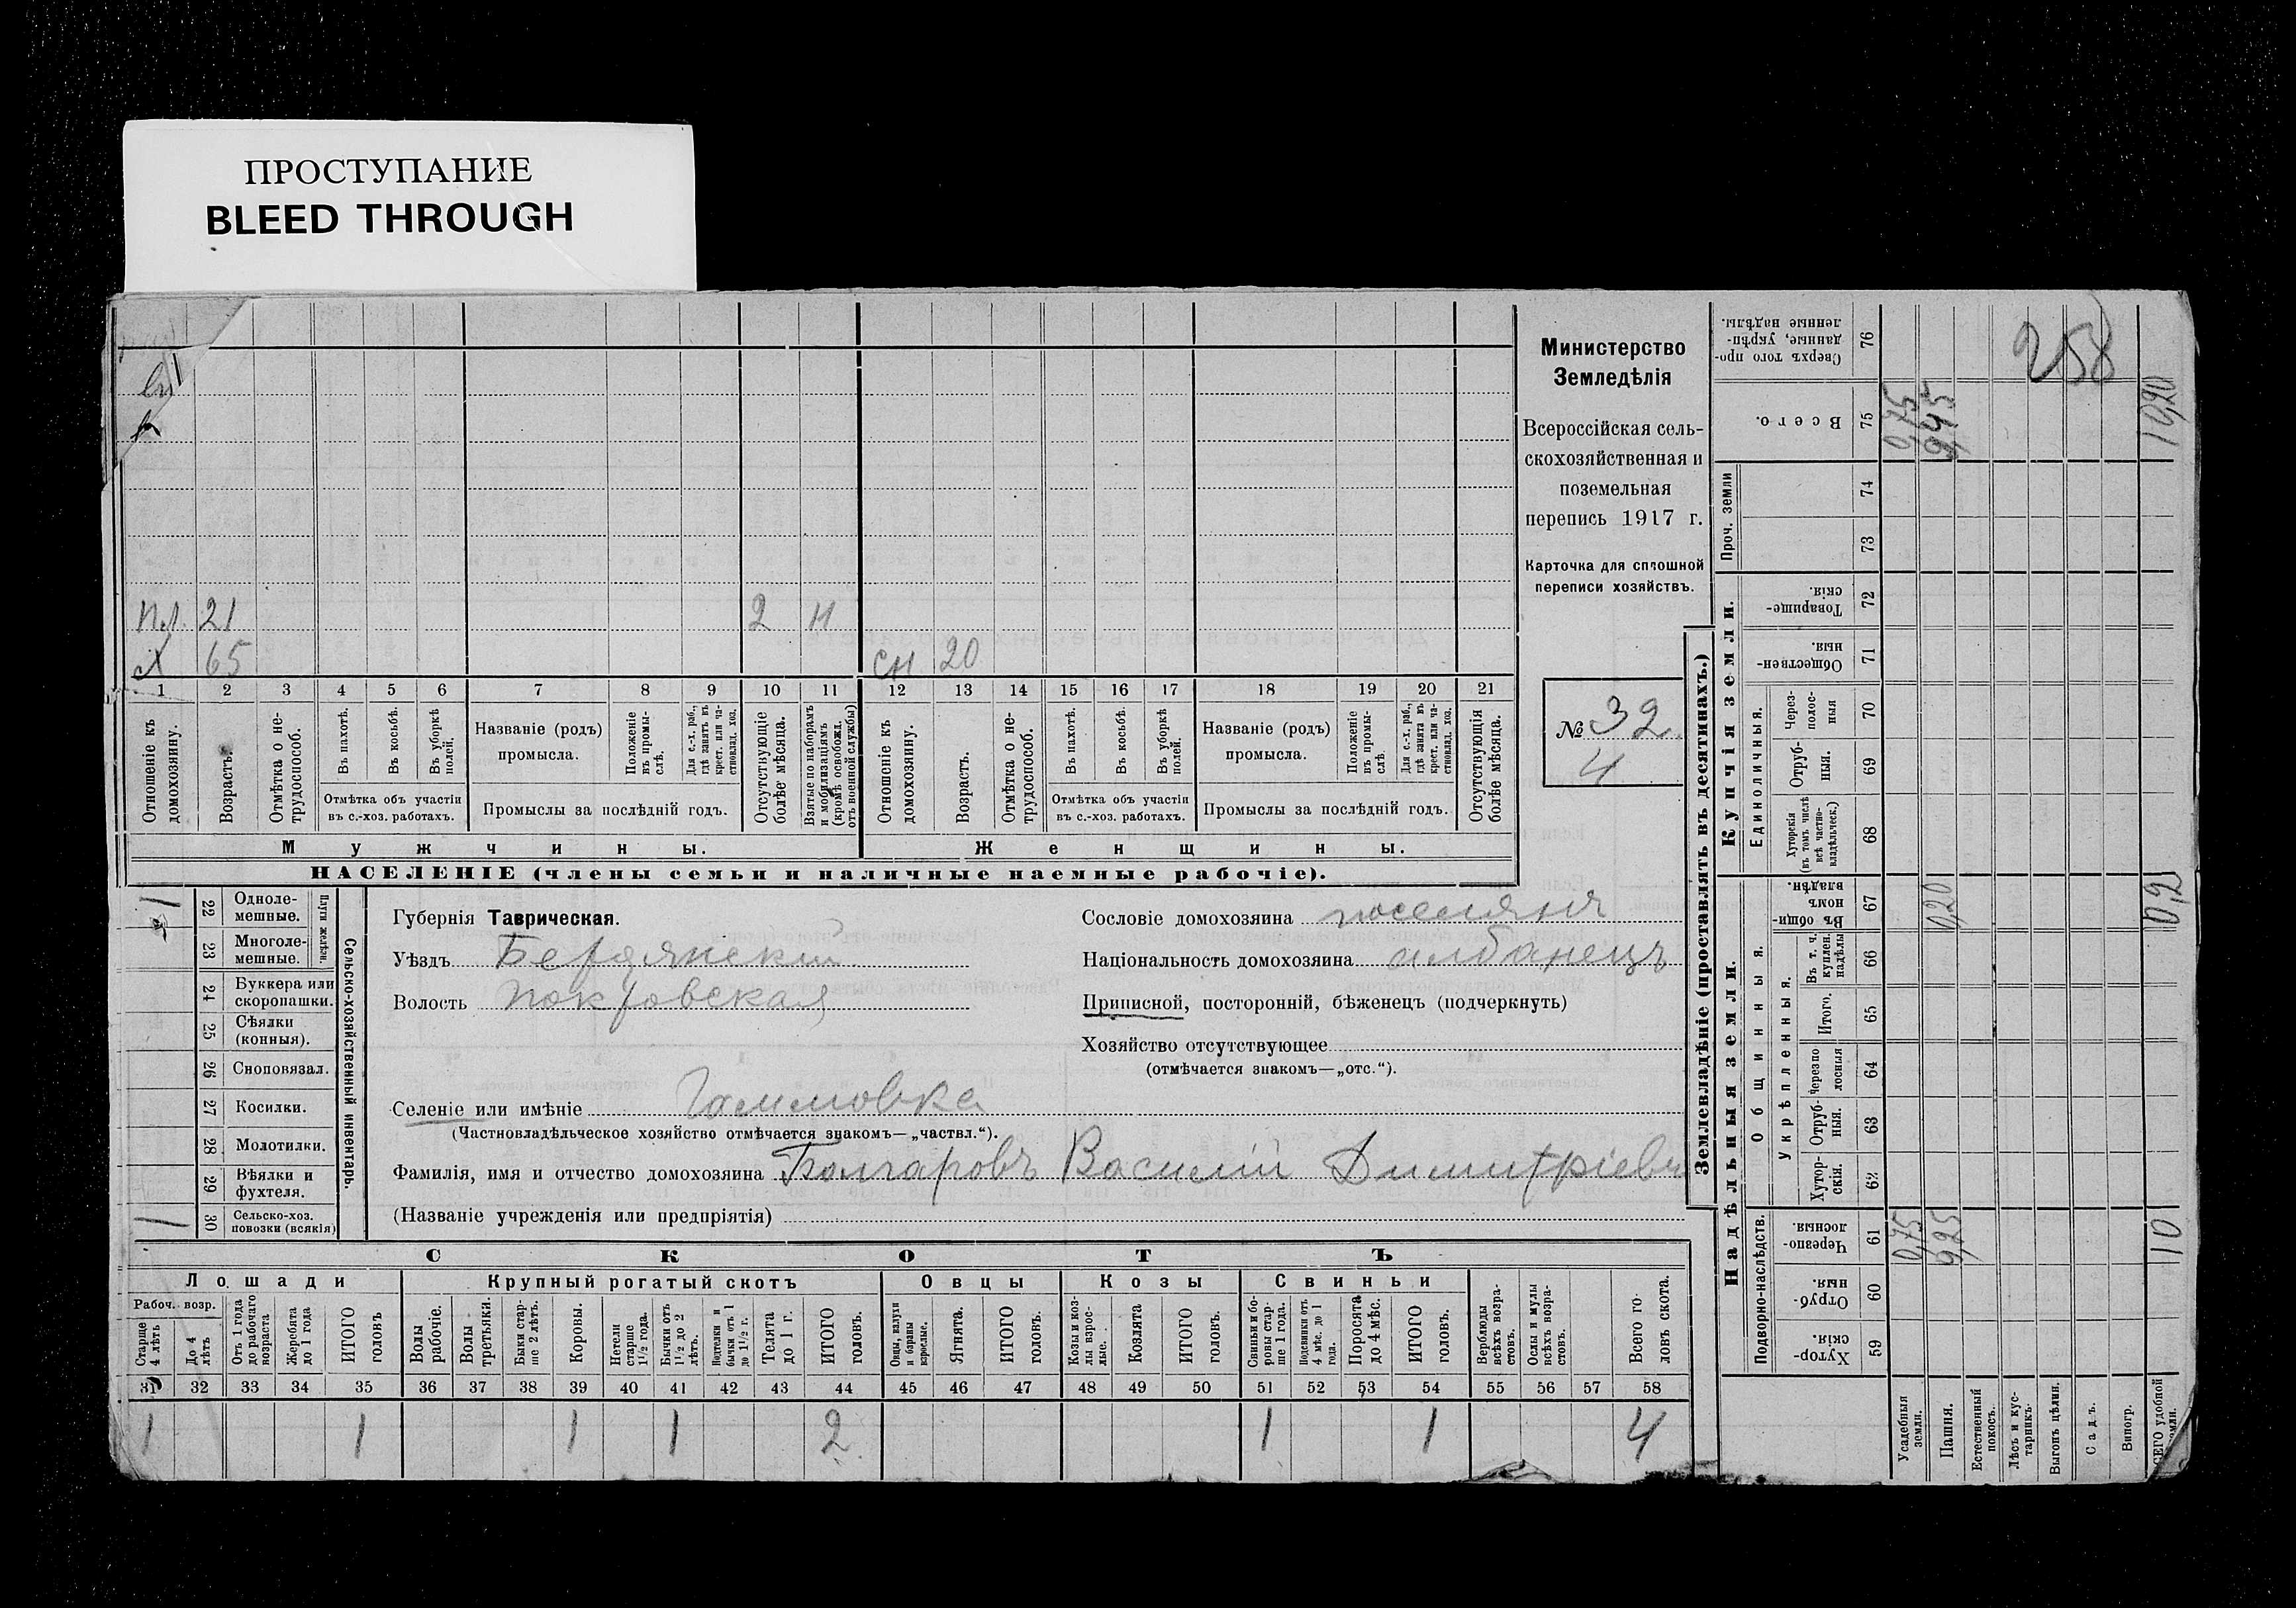 ПРОСТУПАНИЕ
BLEED THROUGH
п.л. 21 2 н
х 65 сн 20
1 2 3 4 5 6 7 8 9 10 11 12 13 14 15 16 17 18 19 20 21
Отношеніе къ домохозяину.
Возрастъ.
Отмѣтка о нетрудоспособ.
Въ пахотѣ.
Въ косьбѣ.
Въ уборкѣ полей.
Отмѣтка объ участіи
въ с.-хоз. работахъ.
Названіе (родъ)
промысла.
Положеніе въ промыслѣ.
Для с.-х. раб., гдѣ занятъ въ крест. или частновлад. хоз.
Промыслы за послѣдній годъ.
Отсутствующіе болѣе мѣсяца.
Взятые по наборамъ и мобилизаціямъ (кромѣ освобожд. отъ военной службы)
Отношеніе къ домохозяину.
Возрастъ.
Отмѣтка о нетрудоспособ.
Въ пахотѣ.
Въ косьбѣ.
Въ уборкѣ полей.
Отмѣтка объ участіи
въ с.-хоз. работахъ.
Названіе (родъ)
промысла.
Положеніе въ промыслѣ.
Для с.-х. раб., гдѣ занята въ крест. или частновлад. хоз.
Промыслы за послѣдній годъ.
Отсутствующія болѣе мѣсяца.
Мужчины.
Женщины.
НАСЕЛЕНІЕ (члены семьи и наличные наемные рабочіе).
Министерство
Земледѣлія
Всероссійская сель-
скохозяйственная и
поземельная
перепись 1917 г.
Карточка для сплошной
переписи хозяйствъ.
№ 32
4
22 Однолемешные. 1
23 Многолемешные.
Плуги желѣзн.
24 Буккера или скоропашки.
25 Сѣялки (конныя).
26 Сноповязал.
27 Косилки.
28 Молотилки.
29 Вѣялки и фухтеля.
30 Сельско-хоз. повозки (всякія) 1
Сельско-хозяйственный инвентарь.
Губернія Таврическая.
Уѣздъ Бердянский
Волость Покровская
Сословіе домохозяина поселянъ
Національность домохозяина албанецъ
Приписной, посторонній, бѣженецъ (подчеркнуть)
Хозяйство отсутствующее
(отмѣчается знакомъ—„отс.“).
Селеніе или имѣніе Гаммовка
(Частновладѣльческое хозяйство отмѣчается знакомъ—„частвл.“).
Фамилія, имя и отчество домохозяина Болгаровъ Василій Димитріеви
(Названіе учрежденія или предпріятія)
СКОТЪ
Лошади Крупный рогатый скотъ Овцы Козы Свиньи
Рабоч. возр.
Старше 4 лѣтъ
До 4 лѣтъ
Отъ 1 года до рабочаго возраста
Жеребята до 1 года
ИТОГО головъ
Волы рабочіе.
Волы третьяки.
Быки старше 2 лѣтъ.
Коровы.
Нетели старше 1½ года.
Бычки отъ 1½ до 2 лѣтъ.
Подтелки и бычки отъ 1 до 1½ г.
Телята до 1 г.
ИТОГО головъ.
Овцы, валухи и бараны взрослые.
Ягнята.
ИТОГО головъ.
Козы и козлы взрослые.
Козлята
ИТОГО головъ.
Свиньи и боровы старше 1 года.
Подсвинки отъ 4 мѣс. до 1 года.
Поросята до 4 мѣс.
ИТОГО головъ.
Верблюды всѣхъ возрастовъ.
Ослы и мулы всѣхъ возрастовъ.
Всего головъ скота.
31 32 33 34 35 36 37 38 39 40 41 42 43 44 45 46 47 48 49 50 51 52 53 54 55 56 57 58
1 1 1 1 2 1 1 4
Землевладѣніе (проставлять въ десятинахъ.)
Купчія земли.
Надѣльныя земли.
Сверхъ того проданные, укрѣпленные надѣлы. 76
258
Всего. 75 0,75 9,45 10,20
Проч. земли
74
73
Товарищескія. 72
Общественныя. 71
Единоличныя.
Черезполосныя 70
Отрубныя. 69
Хуторскія (въ томъ числѣ всѣ частновладѣльческ.) 68
Общинныя.
Въ общинномъ владѣн. 67 0,20 0,2
Укрѣпленныя.
Въ т. ч. куплен. надѣлы 66
Итого. 65
Черезполосныя 64
Отрубныя. 63
Хуторскія. 62
Подворно-наслѣдств.
Черезполосныя. 61 0,75 9,25 10
Отрубныя. 60
Хуторскія. 59
Усадебныя земли.
Пашня.
Естественный покосъ.
Лѣсъ и кустарникъ.
Выгонъ цѣлин.
Садъ.
Виногр.
удобной